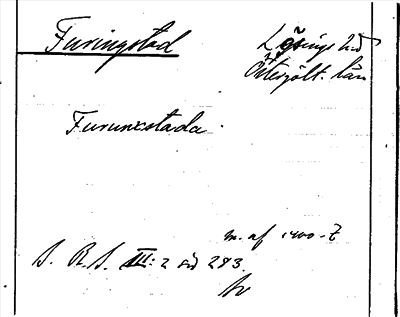 Furingstad
Lösings hd
Östergötl. län
Furunestada.
m. af 1400-t
S. R. S. III: 2 sid 283.